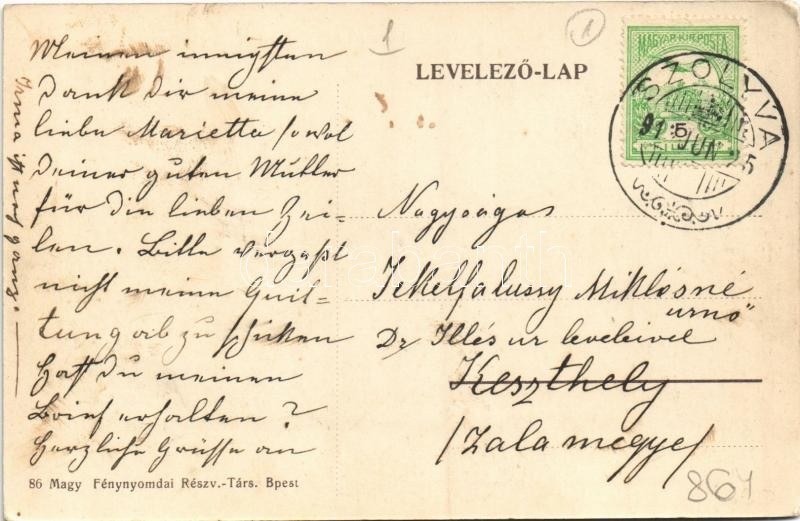 LEVELEZŐ-LAP
1
1
MAGYAR KIR. POSTA
SZOLYVA
Meinen innigsten
Dank Dir meine
liebe Marietta sowol
deiner guten Mutter
für die lieben Zei-
len. Bitte vergeßt
nicht meine Quit-
tung ab zu schicken
Hast Du meinen
Brief erhalten?
Herzliche Grüsse an
Nagyságos
Jekelfalussy Miklósné
urnő
Dr Illés ur leveleivel
Keszthely
/Zala megye/
86 Magy Fénynyomdai Részv.-Társ. Bpest
861
darabanth